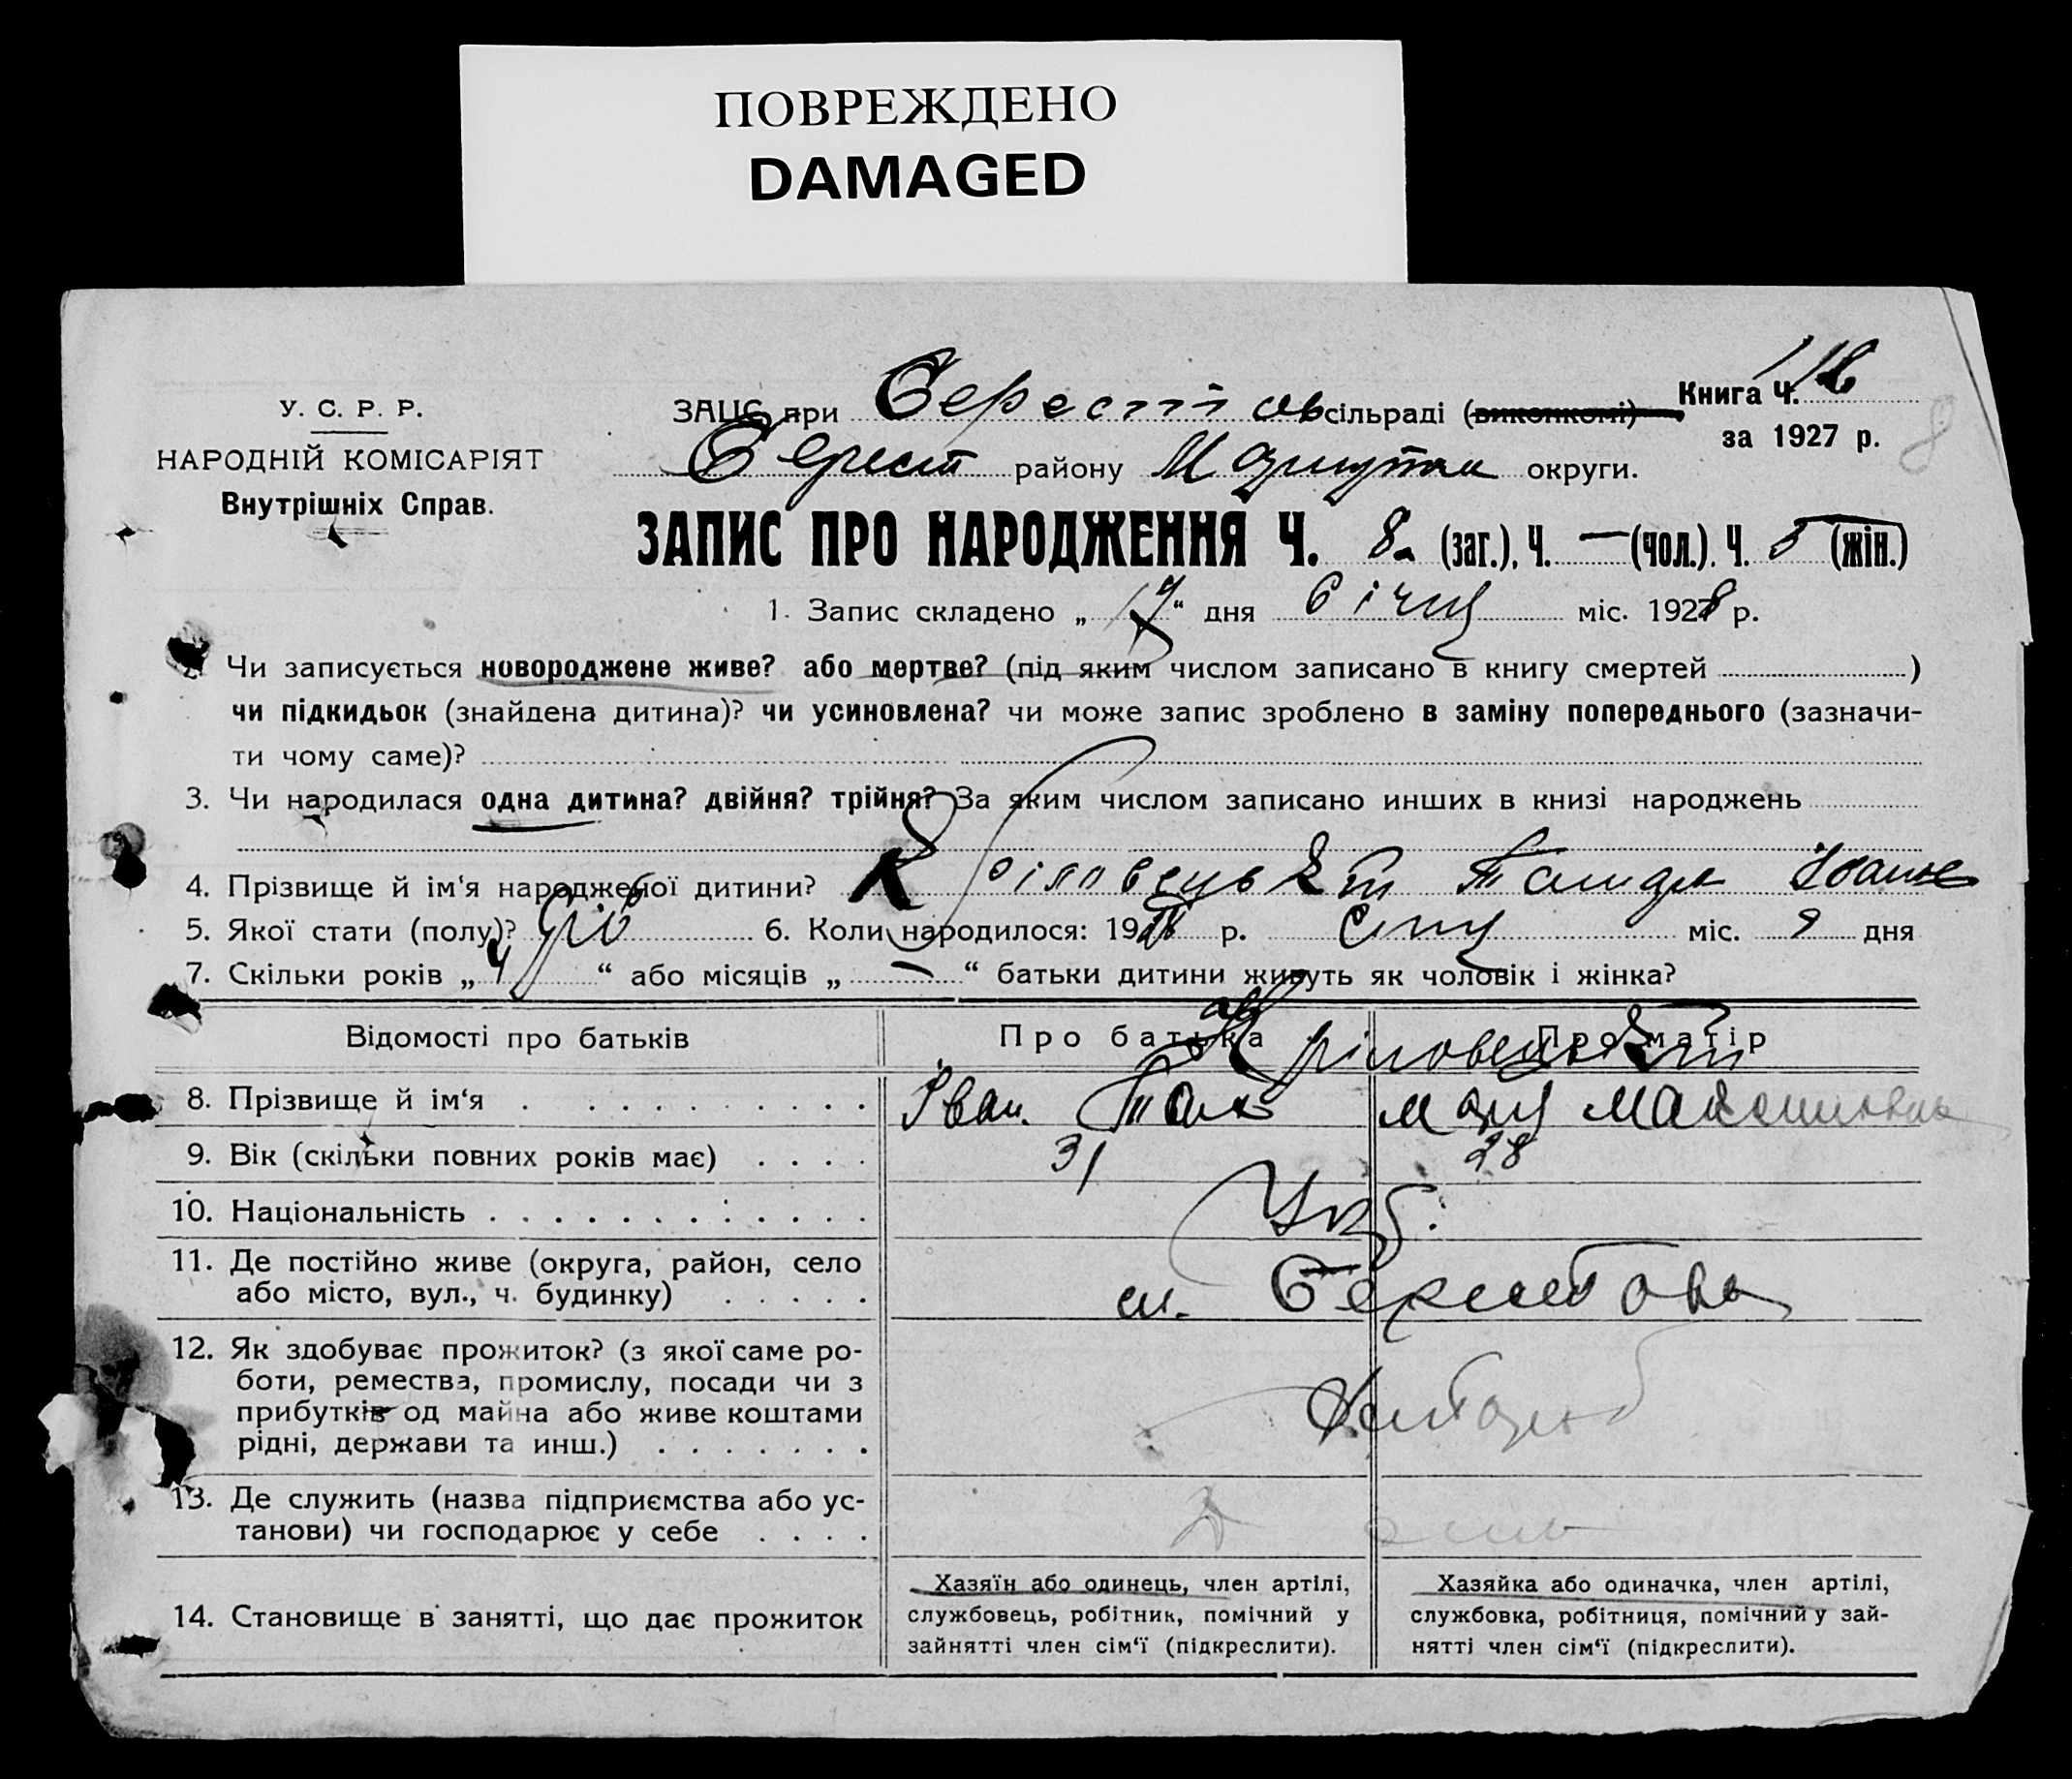 ПОВРЕЖДЕНО
DAMAGED
Книга Ч. 1
У. С. Р. Р.
ЗАЦС при Берестовсільраді (виконкомі)
за 1927 р.
НАРОДНІЙ КОМІСАРІЯТ
Берест району Маріупол округи.
Внутрішніх Справ.
ЗАПИС ПРО НАРОДЖЕННЯ Ч. 8 (заг.), Ч. — (чол.). Ч. 5 (жін.)
1. Запис складено „17“ дня Січня міс. 1928 р.
Чи записується новороджене живе? або мертве? (під яким числом записано в книгу смертей )
чи підкидьок (знайдена дитина)? чи усиновлена? чи може запис зроблено в заміну попереднього (зазначи-
ти чому саме)?
3. Чи народилася одна дитина? двійня? трійня? За яким числом записано инших в книзі народжень
4. Прізвище й ім‘я народженої дитини?
5. Якої стати (полу)? Дів 6. Коли народилося: 1928 р. Січня міс. 9 дня
7. Скільки років „4“ або місяців „—“ батьки дитини живуть як чоловік і жінка?
Відомості про батьків Про батька Про матір
8. Прізвище й ім‘я Іван
9. Вік (скільки повних років має) 31 28
10. Національність Укр.
11. Де постійно живе (округа, район, село
або місто, вул., ч. будинку) Берестова
12. Як здобуває прожиток? (з якої саме ро-
боти, ремества, промислу, посади чи з
прибутків од майна або живе коштами
рідні, держави та инш.)
13. Де служить (назва підприємства або ус-
танови) чи господарює у себе
14. Становище в занятті, що дає прожиток
Хазяїн або одинець, член артілі,
службовець, робітник, помічний у
зайнятті член сім‘ї (підкреслити).
Хазяйка або одиначка, член артілі,
службовка, робітниця, помічний у зай-
нятті член сім‘ї (підкреслити).